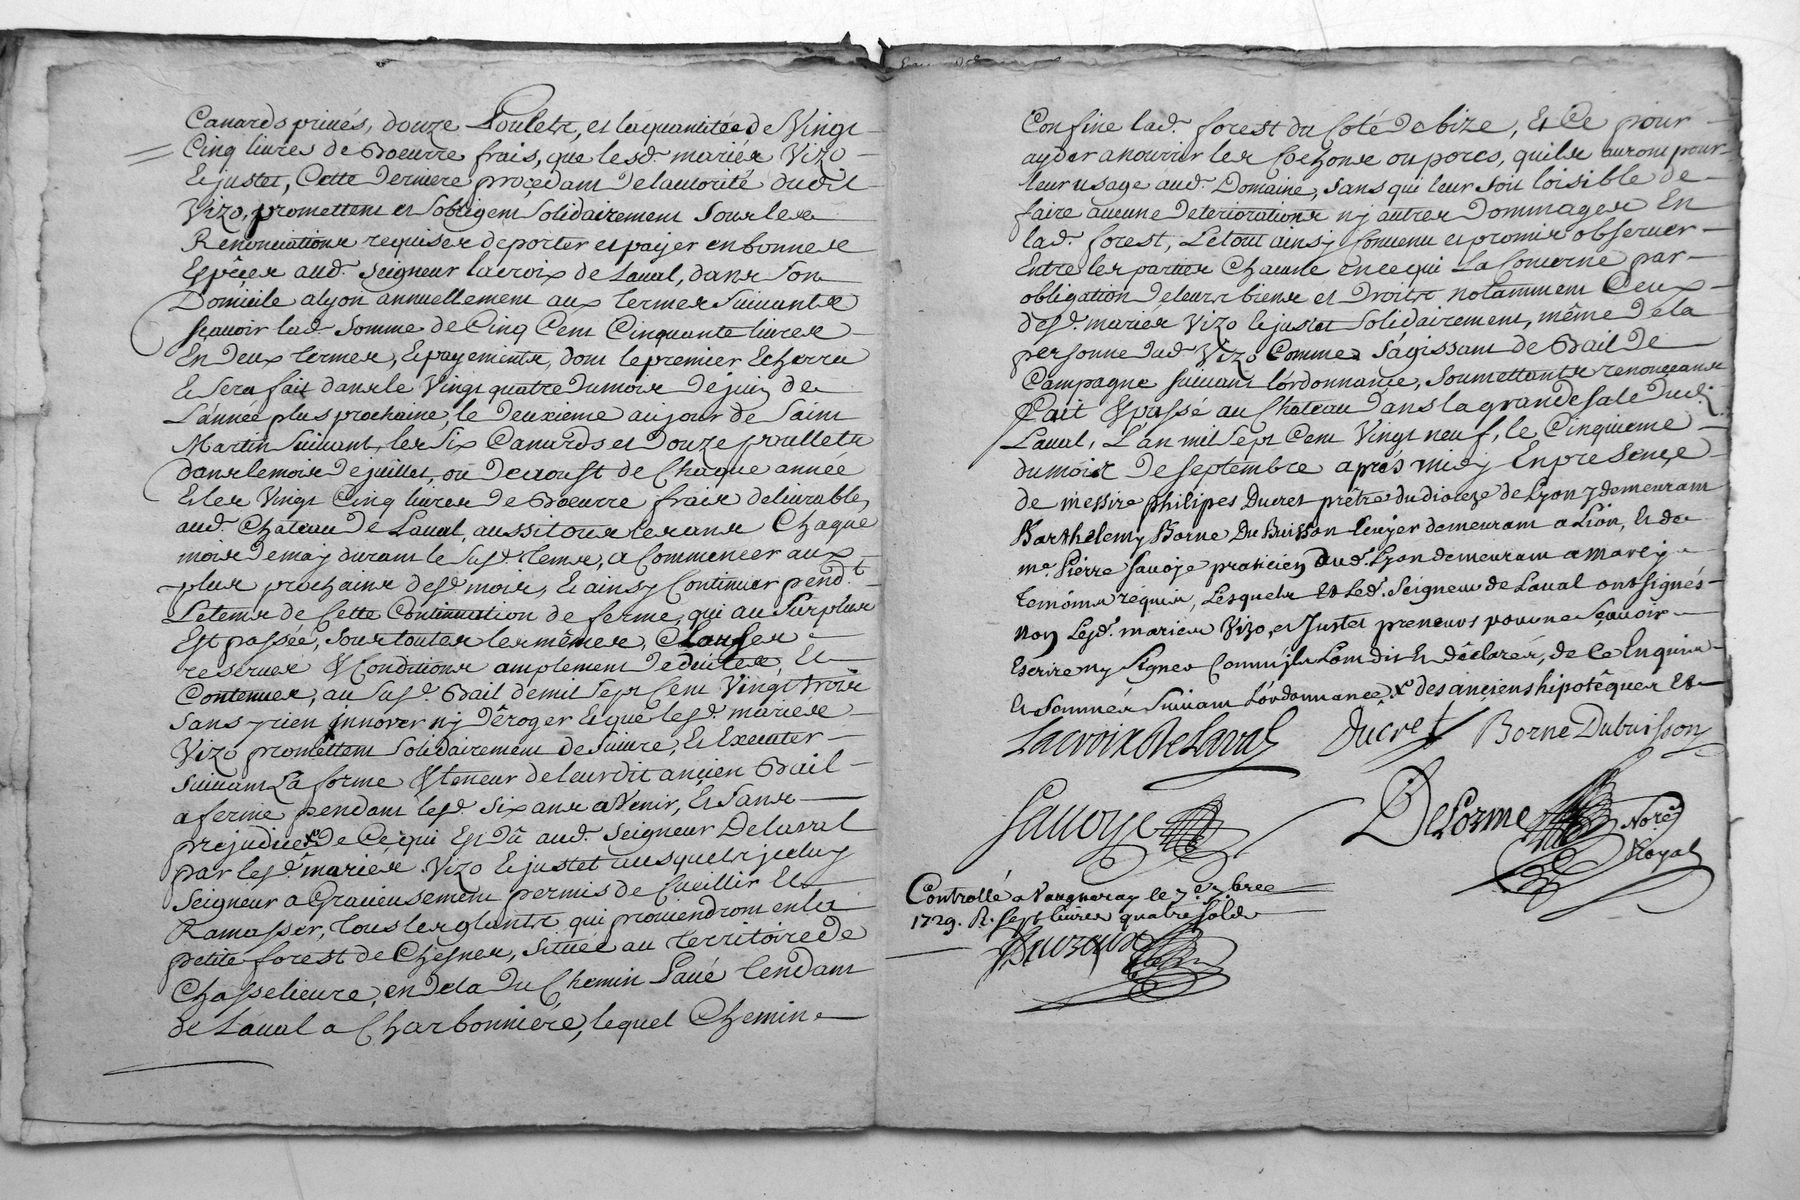 Canards privés, douze Poulets, et la quantitée de Vingt
Cinq livres de Boeurre frais, que lesd. mariés Vizo
Et justet, Cette derniere procedant de lautorité dudit
Vizo, promettent et sobligent solidairement sous les
Renonciations requises de porter et payer en bonnes
Espêces aud. seigneur lacroix de Laval, dans son
Domicile a lyon annuellement aux termes suivants
sçavoir lad. somme de Cinq Cent Cinquante livres
En deux termes, Et payements, dont le premier Echerra
Et sera fait dans le Vingt quatre du mois de juin de
L'année plus prochaine, le deuxieme au jour de saint
Martin suivant, les six Canards et douze poullets
dans le mois de juillet, ou de aoust de Chaque année
Et les Vingt Cinq livres de Boeurre frais delivrable,
aud. Château de Laval, aussi tous les ans Chaque
mois de may durant le susd. tems, a Commencer aux
plus prochains desd. mois, Et ainsy Continuer pendt.
Le tems de Cette Continuation de ferme, qui au surplus
Est passée, sous toutes les mêmes, Clauses
reserves & Conditions amplement deduites, Et
Contenues, au susd. Bail de mil sept Cent Vingt trois
sans y rien innover ny dêroger Et que lesd. mariés
Vizo promettent solidairement de suivre, Et Executer
suivant La forme & teneur de leurdit ancien Bail
a ferme pendant lesd. six ans a Venir, Et sans
prejudice x de Ce qui Est dû aud. seigneur De Laval
par lesd. mariés Vizo Et justet ausquels jceluy
seigneur a Gratieusement permis de Cueillir Et
Ramasser, tous les glants qui proviendront en la
petite forest de Chesnes, située au territoire de
Chasselieure, en dela du Chemin Pavé tendant
de Laval a Charbonnière, lequel Chemin
Confine lad. forest du Coté de bize, Et Ce pour
ayder a nourrir les Cochons ou porcs, quils auront pour
leur usage aud. Domaine, sans qui leur soit loisible de
faire aucune deteriorations ny autres dommages En
lad. forest, Le tout ainsy Convenu et promis observer
Entre les parties Chacune en ce qui La Concerne par
obligation de leurs biens et droits notamment Ceux
desd. mariés Vizo Et justet solidairement, même de la
personne dud. Vizo Comme s'agissant de Bail de
Campagne suivant l'ordonnance, soumettants renonceants
Fait & passé au Château dans la grande sale dudt.
Laval, L'an mil sept Cent Vingt neuf, le Cinquieme
du mois de septembre aprés midy En presençe
de messire philipes Ducret prêtre du dioceze de Lyon y demeurant
Barthelemy Borne Du Buisson Ecuyer demeurant a Lion, Et de
me. Pierre Savoye praticien Dud. Lyon demeurant a marcy
temoins requis, Lesquels Et Led. Seigneur de Laval ont signés
non Lesd. mariés Vizo, et Justet preneurs pour ne sçavoir
Escrire ny signer Comm'jls L'ont dit Et dêclarés, de Ce Enquis
Et sommés suivant L'ordonnance, x des anciens hipotêques Et
Lacroix De Laval Ducret Borne Dubuisson
Savoye DeLorme Nore. Royal
Controllé a Vaugneray le 7.e 7.bre
1729. R. sept livres quatre sols